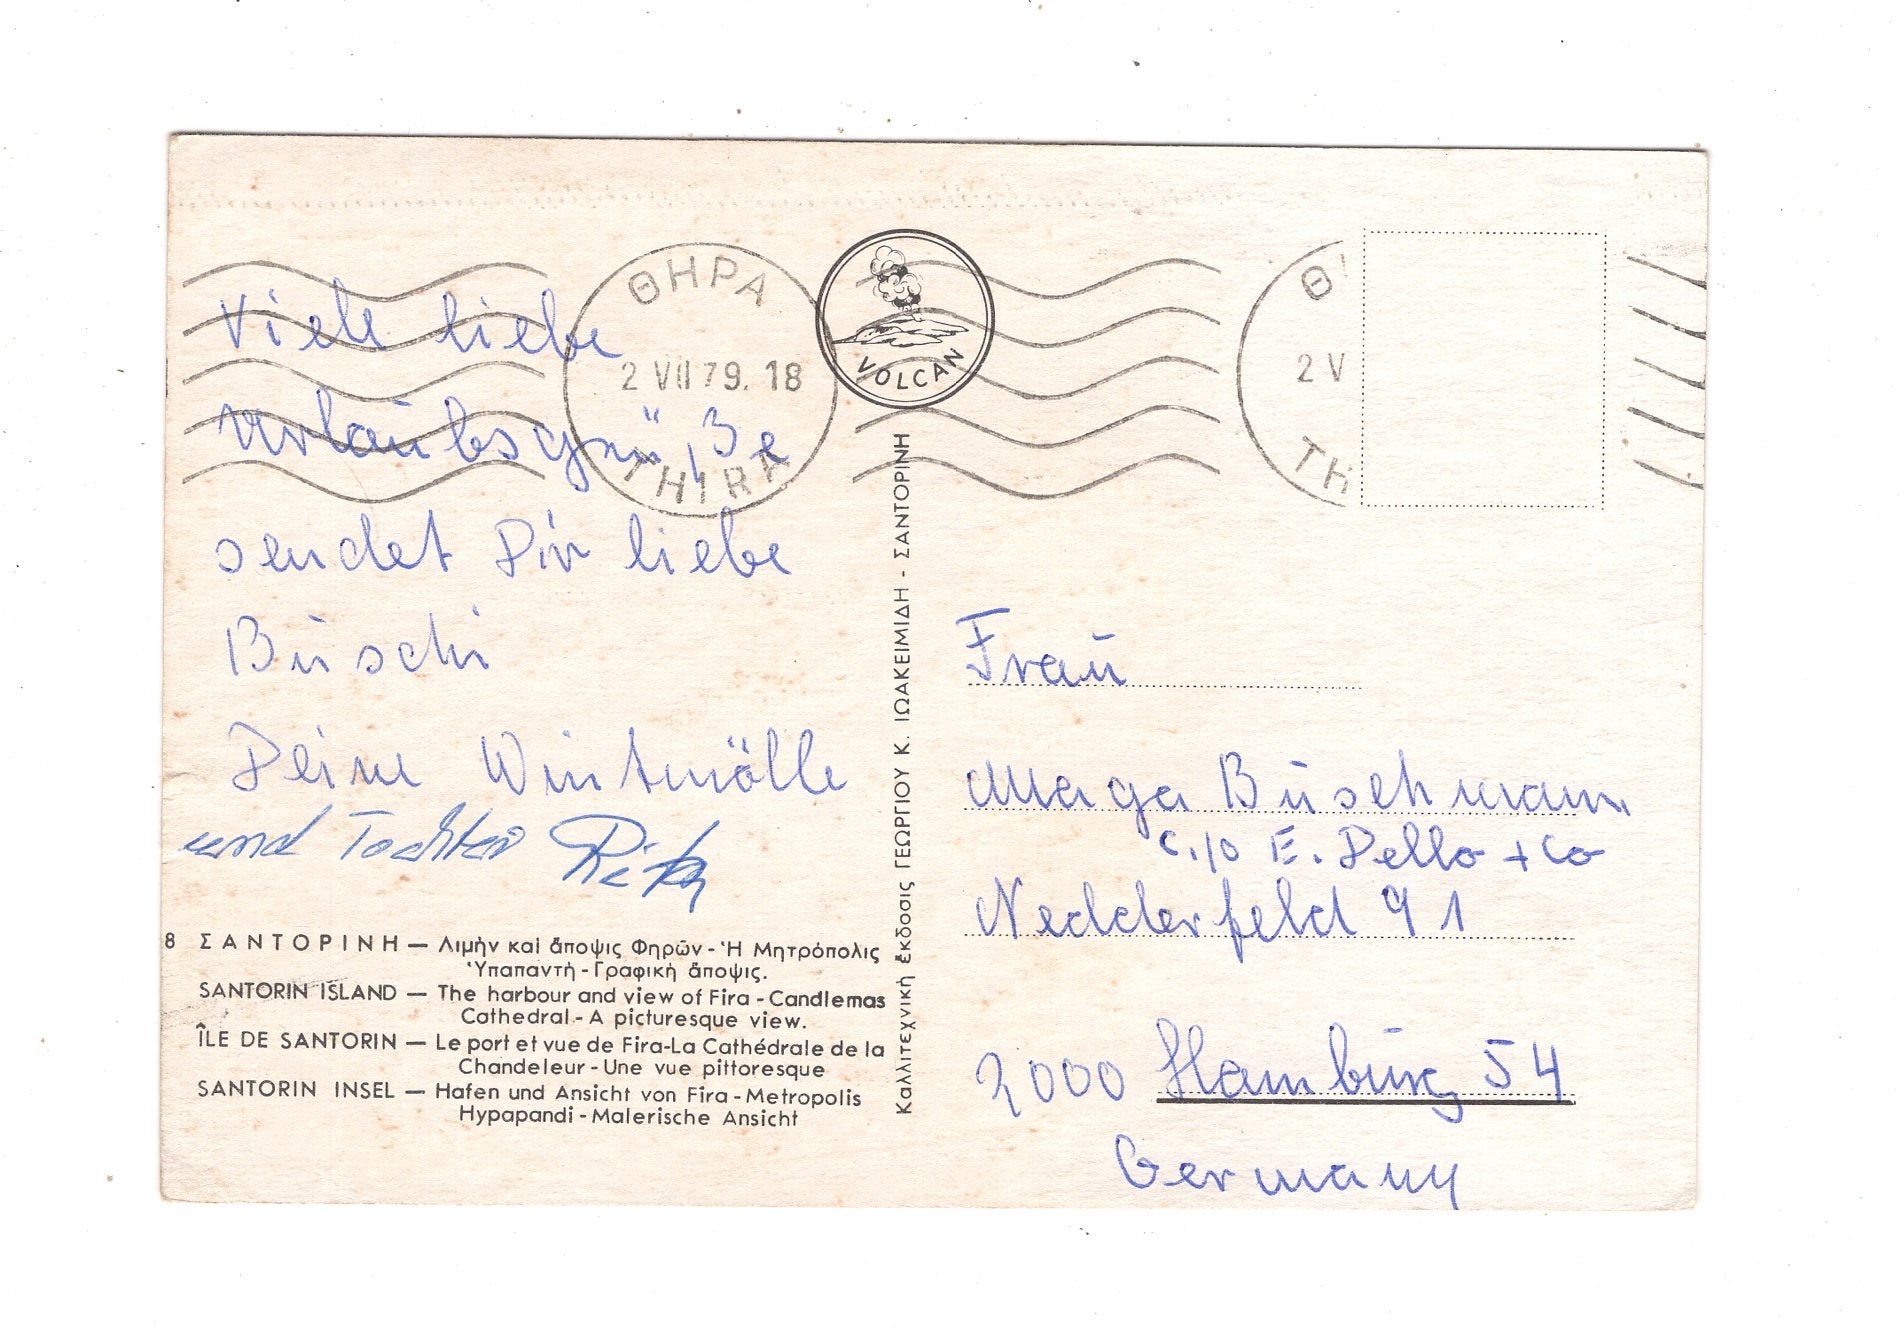 ΘΗΡΑ
2 VII 79. 18
THIRA
VOLCAN
Θ
2 V
TH
Viele liebe
Urlaubsgrüße
sendet Dir liebe
Buschi
Deine Wintmölle
und Tochter
Frau
Maga Buschmann
c./o E. Dello + Co
Nedderfeld 91
2000 Hamburg 54
Germany
8 ΣΑΝΤΟΡΙΝΗ — Λιμὴν καὶ ἄποψις Φηρῶν - Ἡ Μητρόπολις
Ὑπαπαντὴ - Γραφικὴ ἄποψις.
SANTORIN ISLAND — The harbour and view of Fira - Candlemas
Cathedral - A picturesque view.
ÎLE DE SANTORIN — Le port et vue de Fira-La Cathédrale de la
Chandeleur - Une vue pittoresque
SANTORIN INSEL — Hafen und Ansicht von Fira - Metropolis
Hypapandi - Malerische Ansicht
Καλλιτεχνικὴ ἔκδοσις ΓΕΩΡΓΙΟΥ Κ. ΙΩΑΚΕΙΜΙΔΗ - ΣΑΝΤΟΡΙΝΗ